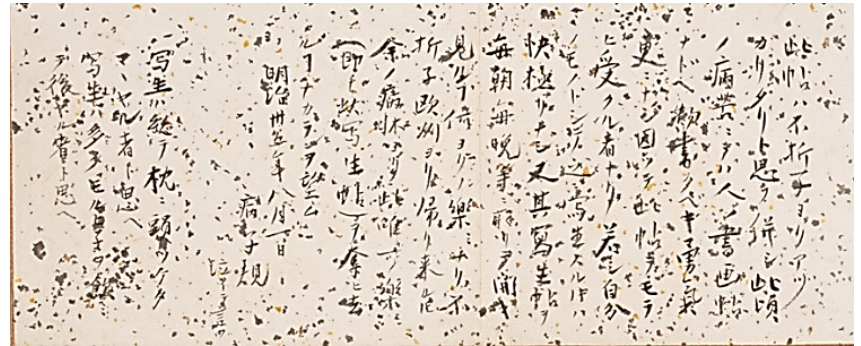 此帖ハ不折子ヨリアヅ
カリタリト思フ併シ此頃
ノ病苦ニテハ人ノ書画帖
ナドヘ書クベキ勇気
更ニナシ因ツテ此帖ヲモラ
ヒ受クル者ナリ若シ自分
ノモノトシテ写生スル時ハ
快極リナシ又其写生帖ヲ
毎朝毎晩手ニ取リテ開キ
見ルヿ何ヨリノ楽ミナリ不
折子欧州ヨリ帰リ来ルトモ
余ノ病牀ヨリ此唯一ノ楽ミ
(即チ此写生帖)ヲ奪ヒ去
ルヿナカランヲ望ム
明治卅五年八月一日
病子規
泣イテ言フ
写生ハ総テ枕ニ頭ツケタ
マヽヤル者ト思ヘ
写生ハ多クモルヒネヲ飲ミ
テ後ヤル者ト思ヘ